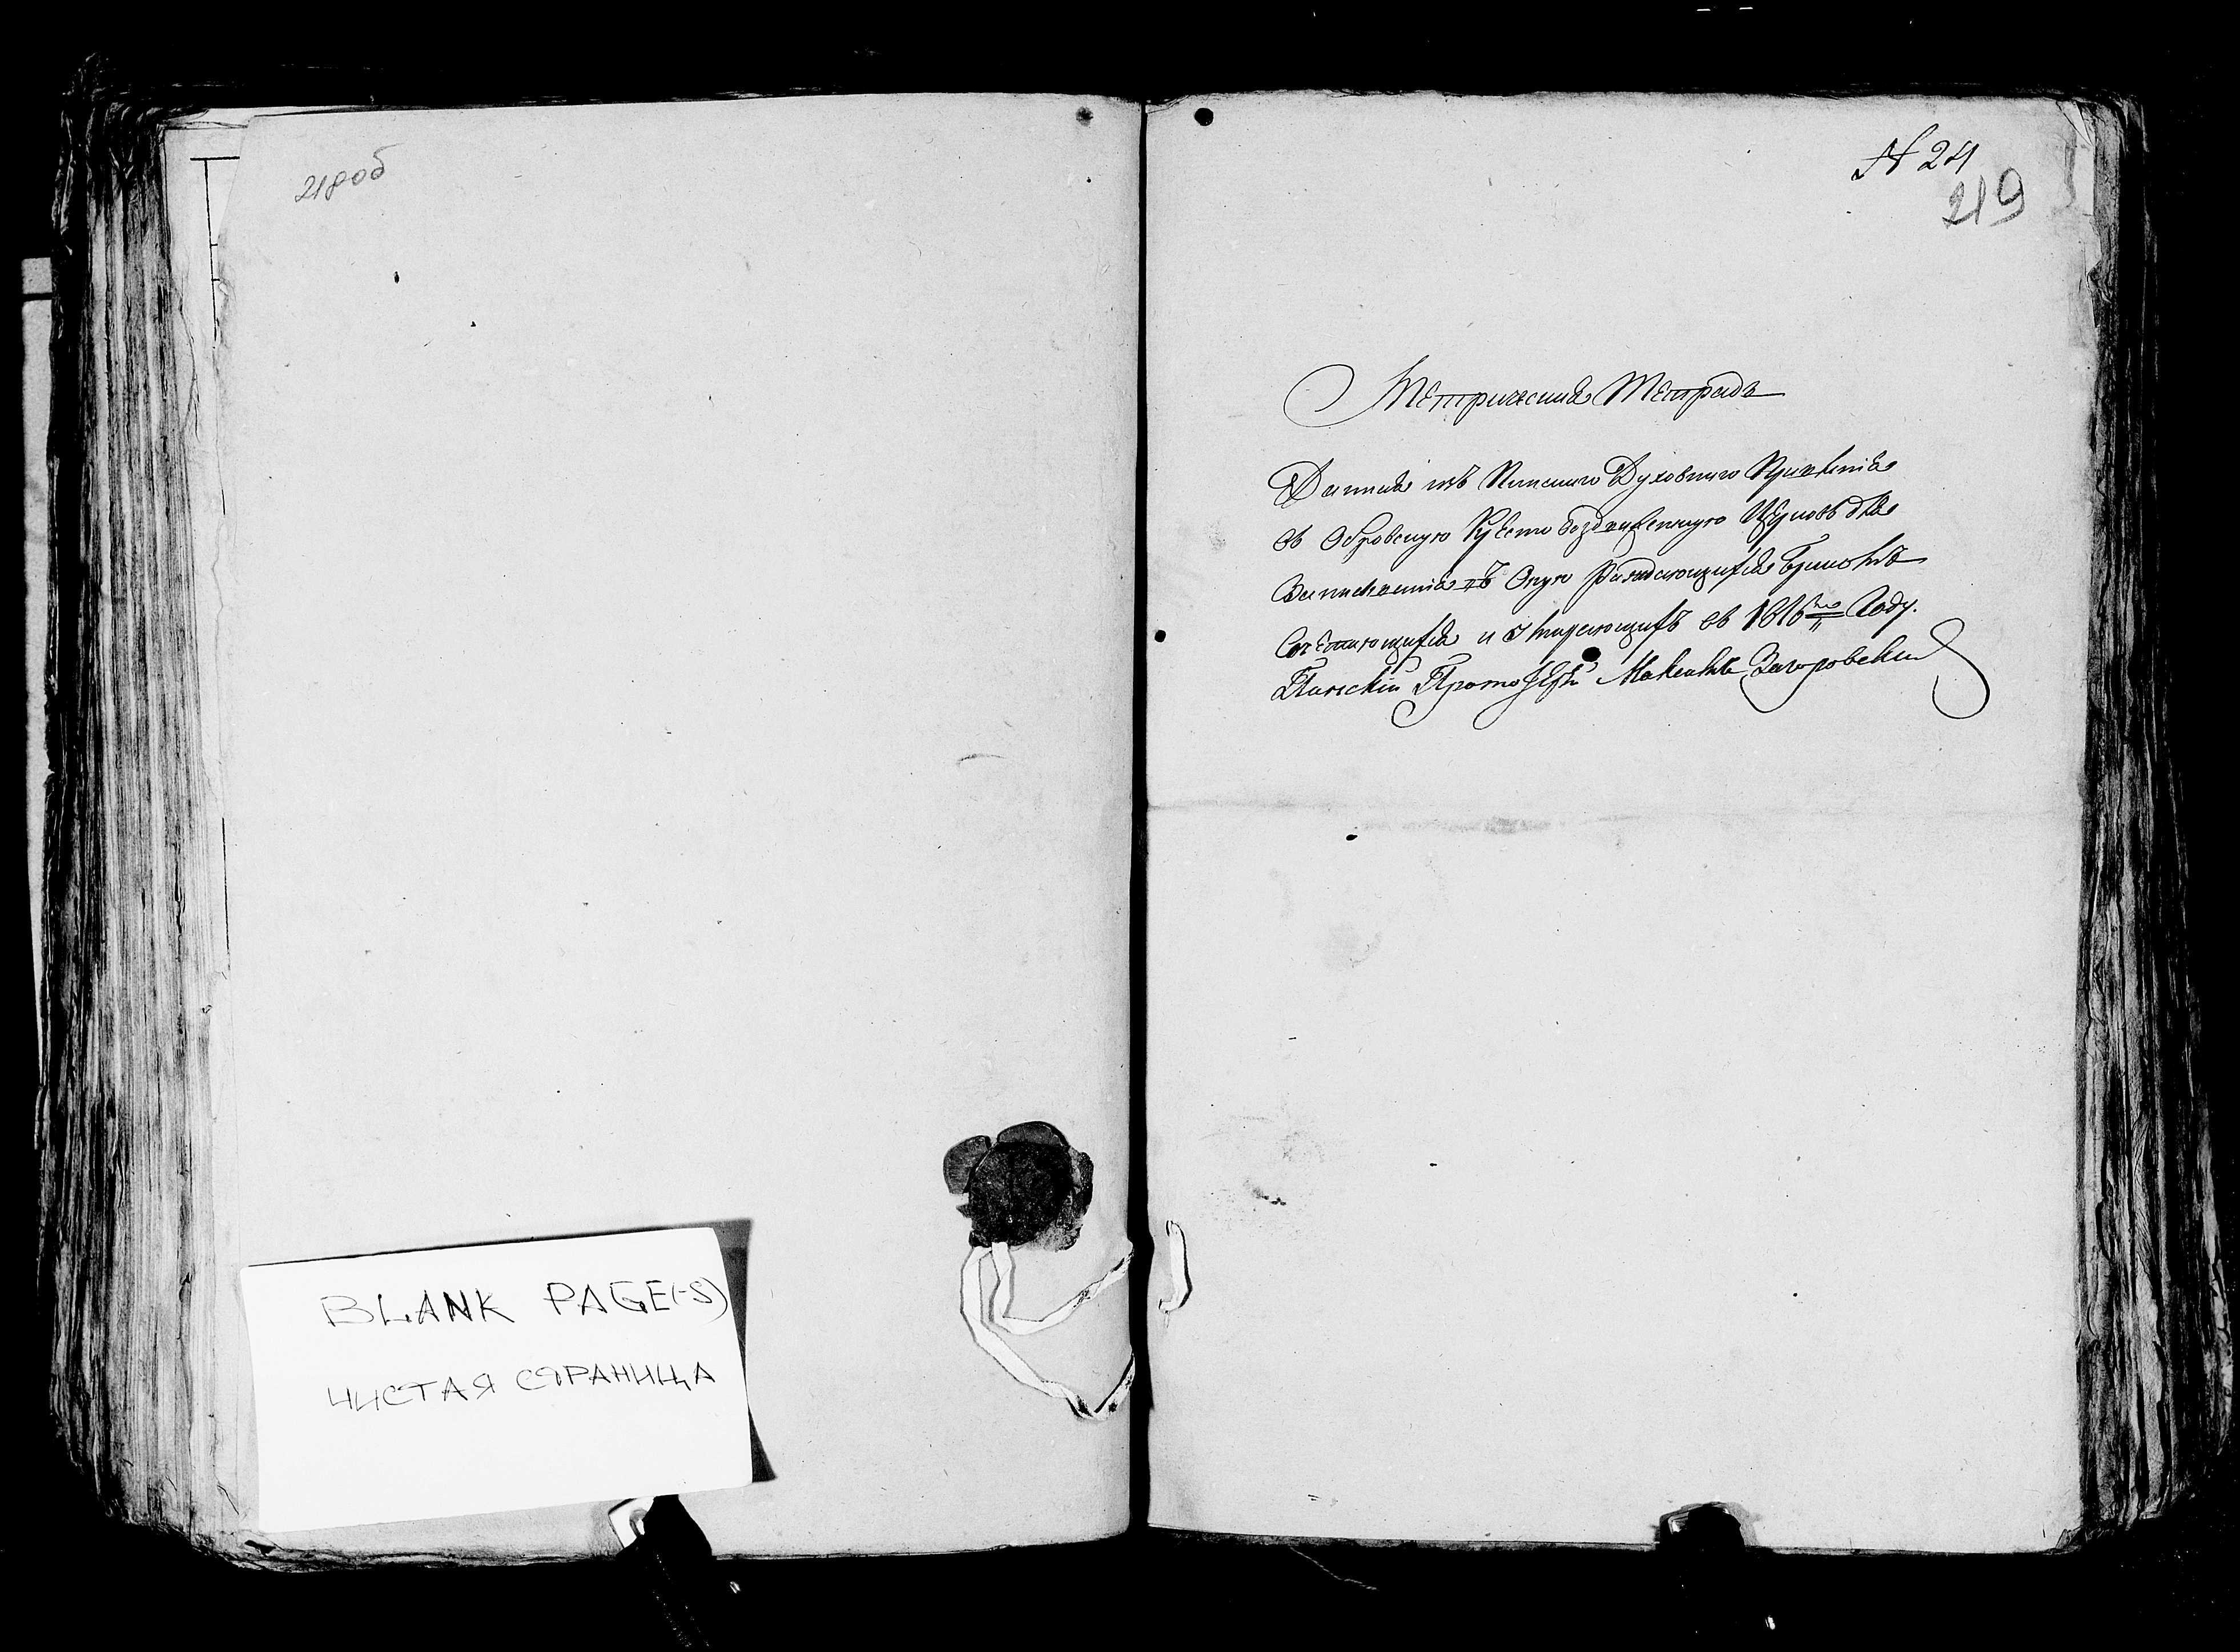 218об
BLANK PAGE(-S)
ЧИСТАЯ СТРАНИЦА
N 24
219
Метрическая Тетрадь
Данная изъ Пинскаго Духовнаго Правленія
въ Обровскую Кресто Воздвиженскую Церковь для
Записанія въ Оную раждающихся Бракомъ
Сочетающихся и Умирающихъ въ 1816мъ Году.
Пинскій Протоіерей Загоровскій